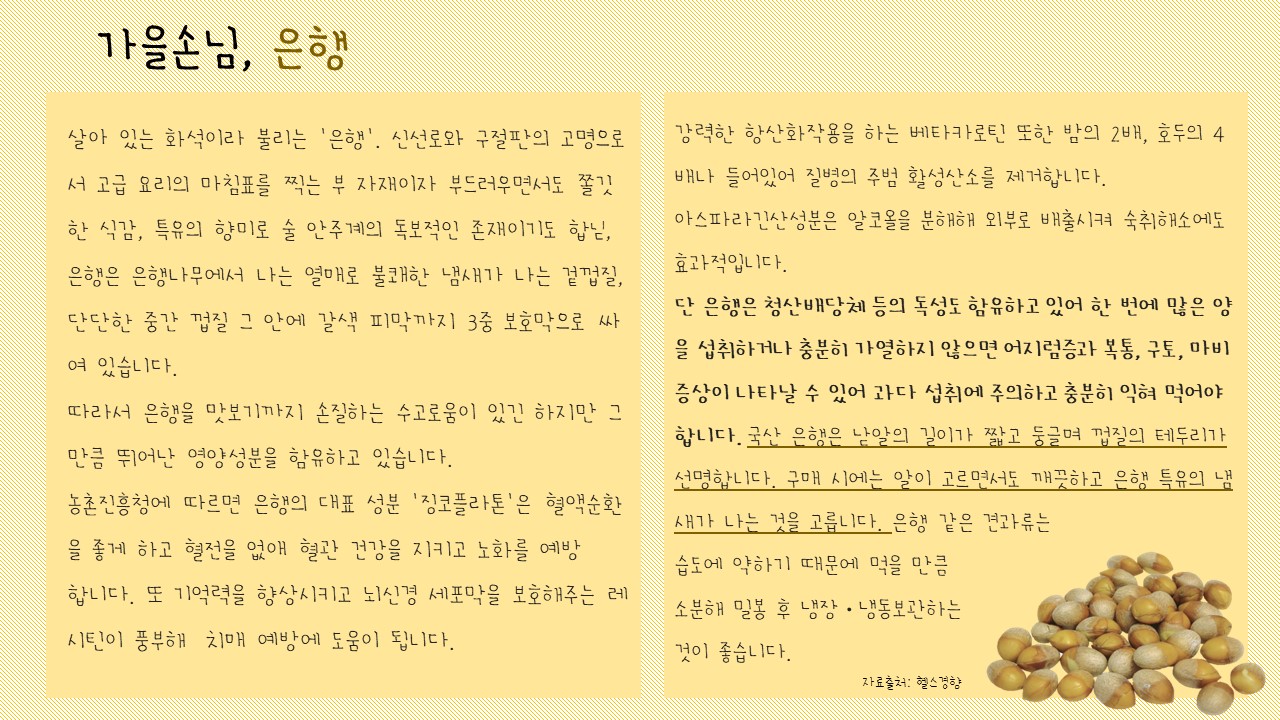 가을손님, 은행
살아 있는 화석이라 불리는 '은행'. 신선로와 구절판의 고명으로
서 고급 요리의 마침표를 찍는 부 자재이자 부드러우면서도 쫄깃
한 식감, 특유의 향미로 술 안주계의 독보적인 존재이기도 합닏,
은행은 은행나무에서 나는 열매로 불쾌한 냄새가 나는 겉껍질,
단단한 중간 껍질 그 안에 갈색 피막까지 3중 보호막으로 싸
여 있습니다.
따라서 은행을 맛보기까지 손질하는 수고로움이 있긴 하지만 그
만큼 뛰어난 영양성분을 함유하고 있습니다.
농촌진흥청에 따르면 은행의 대표 성분 '징코플라톤'은 혈액순환
을 좋게 하고 혈전을 없애 혈관 건강을 지키고 노화를 예방
합니다. 또 기억력을 향상시키고 뇌신경 세포막을 보호해주는 레
시틴이 풍부해 치매 예방에 도움이 됩니다.
강력한 항산화작용을 하는 베타카로틴 또한 밤의 2배, 호두의 4
배나 들어있어 질병의 주범 활성산소를 제거합니다.
아스파라긴산성분은 알코올을 분해해 외부로 배출시켜 숙취해소에도
효과적입니다.
단 은행은 청산배당체 등의 독성도 함유하고 있어 한 번에 많은 양
을 섭취하거나 충분히 가열하지 않으면 어지럼증과 복통, 구토, 마비
증상이 나타날 수 있어 과다 섭취에 주의하고 충분히 익혀 먹어야
합니다. 국산 은행은 낟알의 길이가 짧고 둥글며 껍질의 테두리가
선명합니다. 구매 시에는 알이 고르면서도 깨끗하고 은행 특유의 냄
새가 나는 것을 고릅니다. 은행 같은 견과류는
습도에 약하기 때문에 먹을 만큼
소분해 밀봉 후 냉장·냉동보관하는
것이 좋습니다.
자료출처: 헬스경향